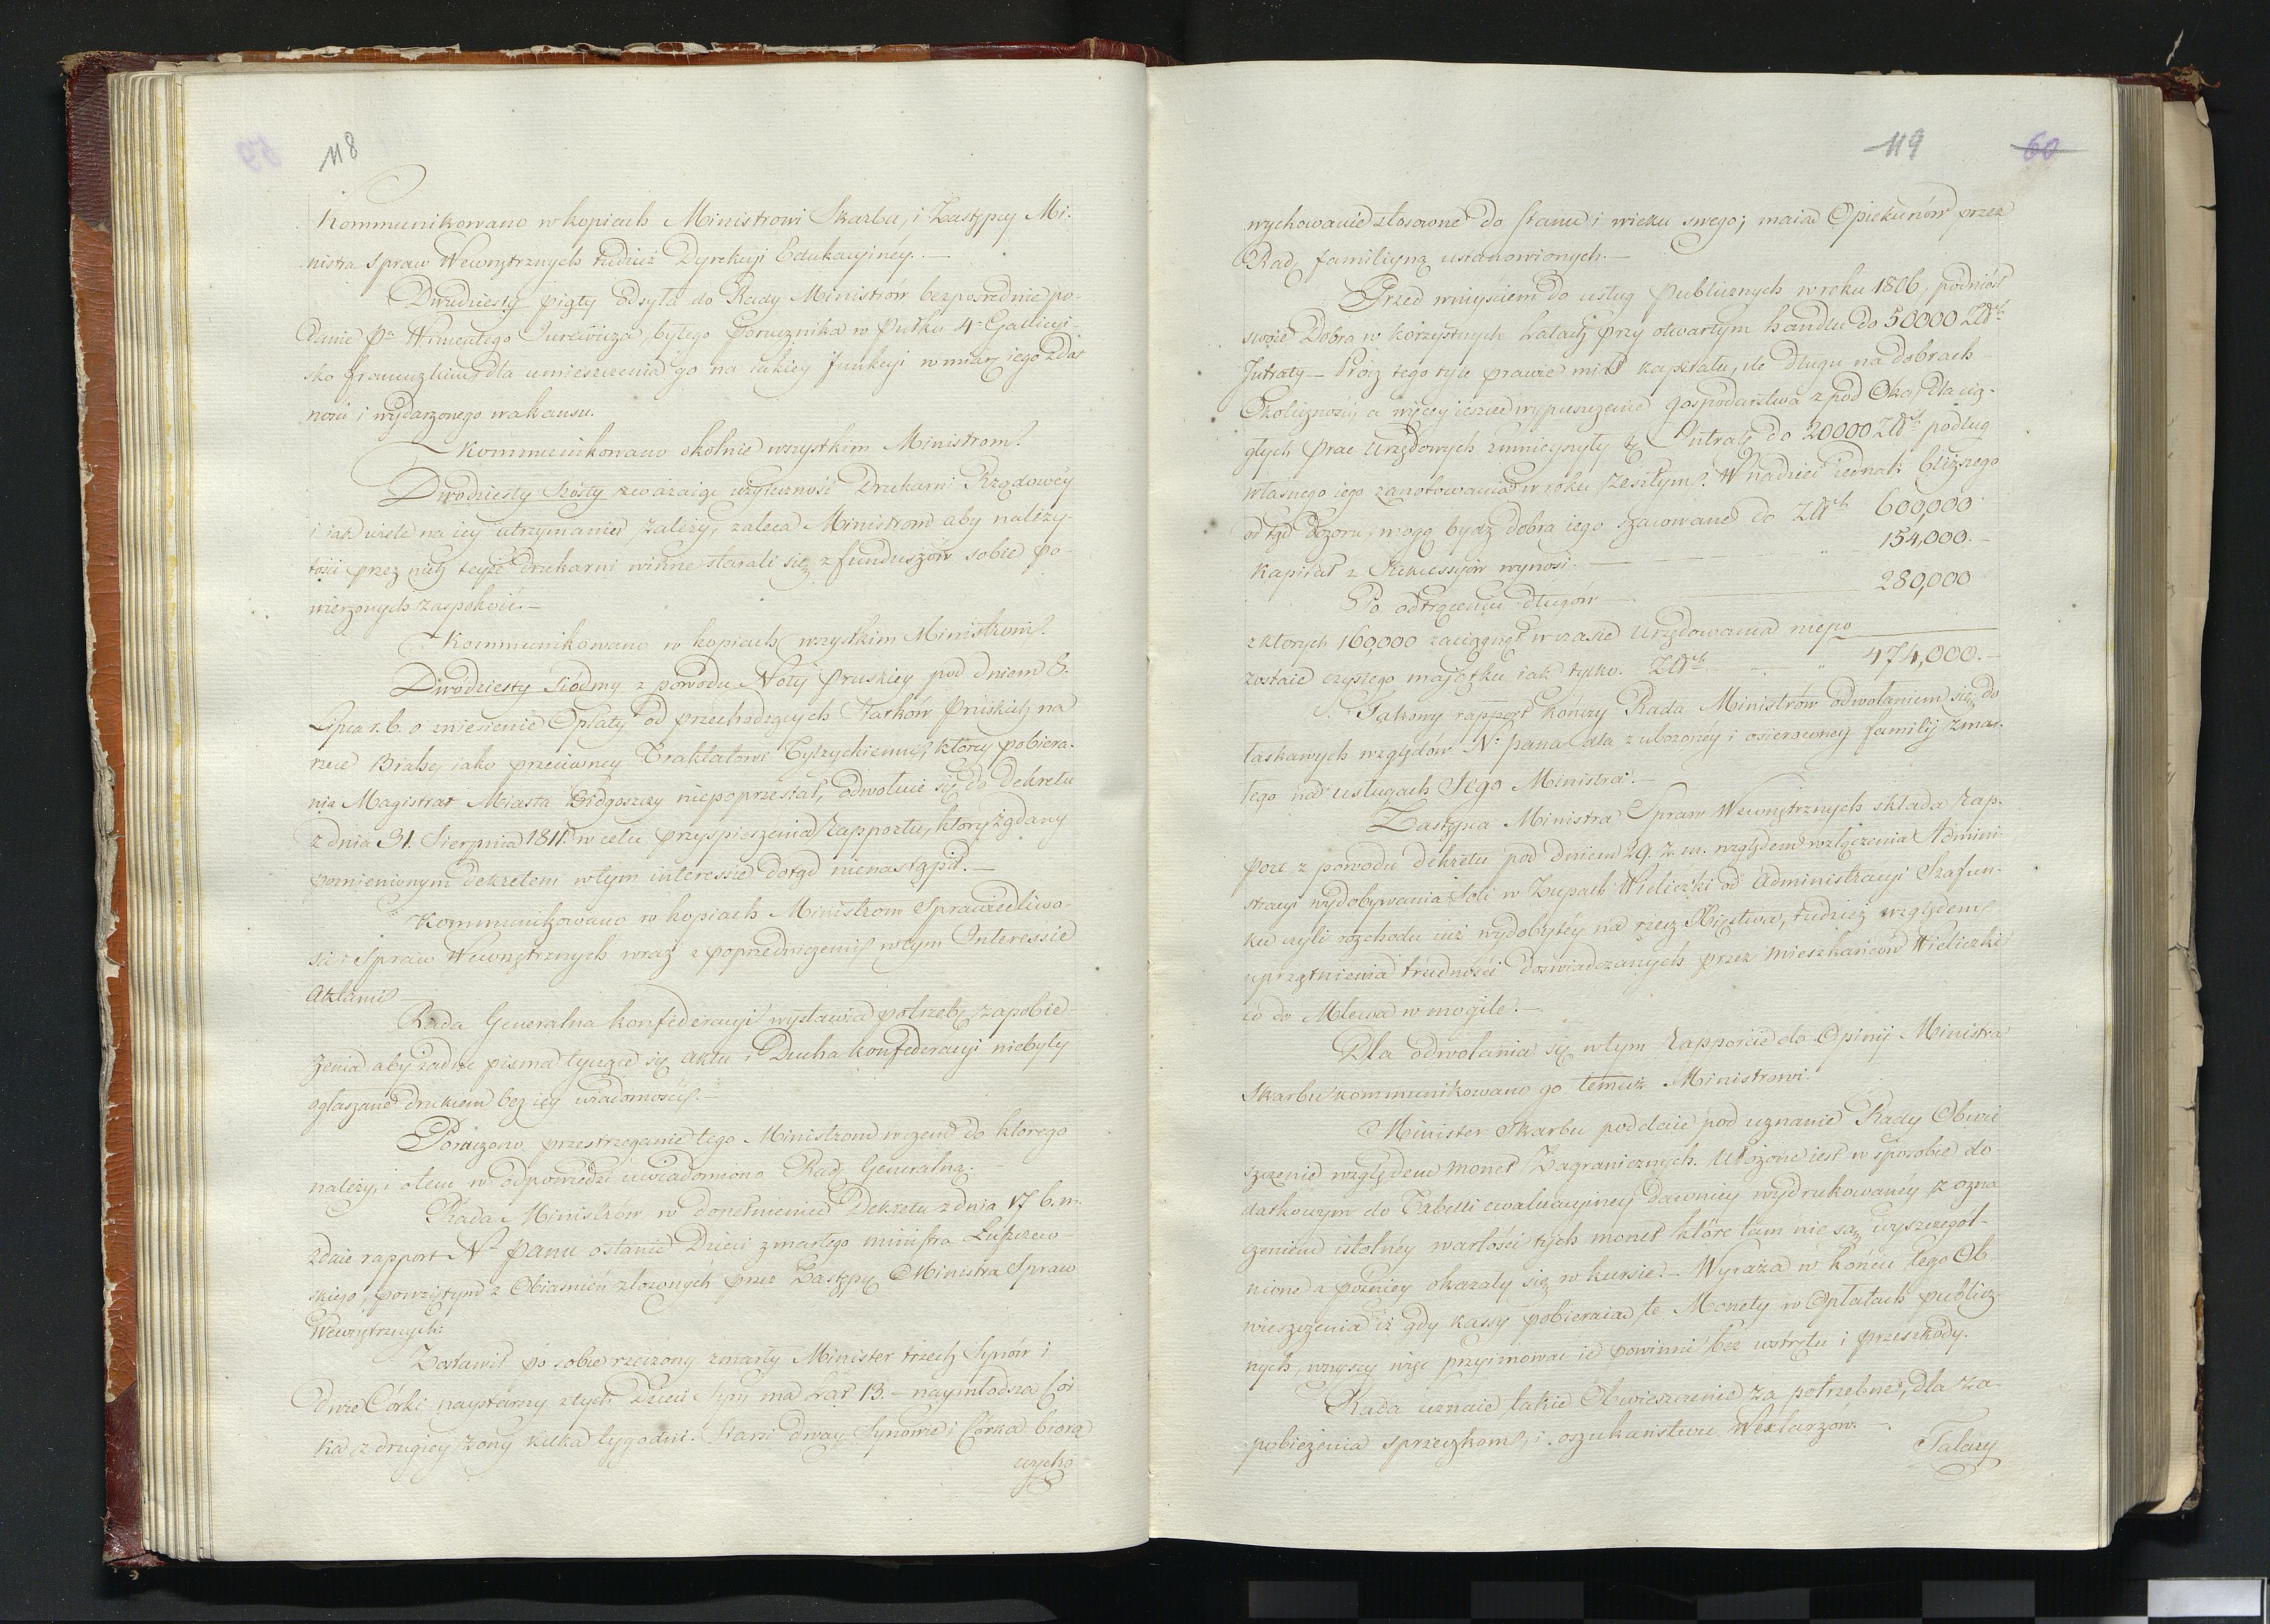 118
Kommunikowano w kopiach Ministrowi Skarbu, i Zastępcy Mi-
nistra Spraw Wewnętrznych tudzież Dyrekcyi Edukacyinéy.—
Dwudziesty piąty odsyła do Rady Ministrów bezpośrednie po-
danie Pa Wincentego Jurewicza, byłego Porucznika w Pułku 4m Gallicyi-
sko francuzkim, dla umieszczenia go na iakiey funkcyi w miarę iego zdat
ności i wydarzonego wakansu.
Kommunikowano okolnie wszystkim Ministrom.
Dwódziesty szósty zważaiąc użyteczność Drukarni Rządowéy
i iak wiele na iey utrzymaniu zależy, zaleca Ministrom aby należy-
tości przez nich teyże drukarni winne starali się z funduszów sobie po-
wierzonych zaspokoić.—
Kommunikowano w kopiach wszystkim Ministrom.
Dwódziesty Siódmy z powodu Noty Pruskiey pod dniem 8.
Lipca r. b. o zniesienie Opłaty od przechodzących Statków Pruskich na
rzece Brahe, iako przeciwney Traktatowi Tylżyckiemu, którey pobiera-
nia Magistrat Miasta Bidgoszczy niepoprzestał, odwołuie się do Dekretu
z dnia 31. Sierpnia 1811. w celu przyspieszenia Rapportu, który żądany
pomienionym dekretem w tym interessie dotąd nienastąpił.—
Kommunikowano w kopiach Ministrom Sprawiedliwo-
ści i Spraw Wewnętrznych wraz z poprzedniczemi w tym Interessie
Aktami
Rada Generalna konfederacyi wystawia potrzebę zapobie-
żenia aby żadne pisma tyczące się Aktu i Ducha konfederacyi niebyły
ogłaszane drukiem bez iey wiadomości.—
Poruczono przestrzeganie tego Ministrom w czem do ktorego
należy, i o tem w odpowiedzi uwiadomiono Radę Generalną.—
Rada Ministrów w dopełnieniu Dekretu z dnia 17 b. m.
zdaie rapport Nu Panu o stanie Dzieci zmarłego ministra Łuszczew-
skiego, powziętym z Obiasnień złożonych przez Zastępcę Ministra Spraw
Wewnętrznych:
Zostawił po sobie rzeczony zmarły Minister trzech Synów i
dwie Córki naystarszy z tych Dzieci Syn ma lat 13.— naymłodsza Cór
ka z drugiey żony kilka tygodni. Starsi dway Synowie i Córka biorą
wycho
119 60
wychowanie stosowne do stanu i wieku swego; maią Opiekunów przez
Radę familiyną ustanowionych.—
Przed wniyściem do usług Publicznych w roku 1806, podniósł
swoie Dobra w korzystnych Latach przy otwartym handlu do 50000 Złch
Intraty— Prócz tego tyle prawie miał kapitału, ile długu na dobrach
Okoliczności, a więcey ieszcze wypuszczenie gospodarstwa z pod Oka, dla cią-
głych prac Urzędowych zmnieyszyły tę Intratę do 20000 Złch podług
własnego iego zanotowania w roku zeszłym. W nadziei iednak bliższego
od tąd dozoru, mogą bydź dobra iego szacowane do Złch 600,000
Kapitał z Sukcessyów wynosi.— " 154,000.—
Po odtrąceniu długów — 280,000
z ktorych 160,000 zaciągnął w czasie Urzędowania niepo
zostaie czystego maiątku iak tylko. Złch " 474,000.—
Takowy rapport kończy Rada Ministrów odwołaniem się do
łaskawych względów Nο Pana dla zubożonéy i osieroconey familij zmar-
łego na usługach Jego Ministra.—
Zastępca Ministra Spraw Wewnętrznych składa rap-
port z powodu dekretu pod dniem 29. z. m. względem rozłączenia Admini-
stracyi wydobywania Soli w Żupach Wieliczki od Administracyi Szafun-
ku czyli rozchodu iuż wydobytéy na rzecz Xięstwa, tudzież względem
uprzątnienia trudności doświadczanych przez mieszkańców Wieliczki
co do Mlewa w mogile.—
Dla odwołania się w tym Rapporcie do Opinij Ministra
Skarbu kommunikowano go temuż Ministrowi.
Minister Skarbu poddaie pod uznanie Rady Obwie
szczenie względem monet Zagranicznych. Ułożone iest w sposobie do-
datkowym do Tabelli ewaluacyiney dawniey wydrukowaney z ozna
czeniem istotnéy wartości tych monet które tam nie są wyszczegól-
nione a późniey okazały się w kursie.— Wyraża w końcu tego Ob-
wieszczenia iż gdy kassy pobieraią te Monety w Opłatach publicz-
nych, wszyscy więc przyimować ie powinni bez wstrętu i przeszkody.
Rada uznaie takie Obwieszczenie za potrzebne, dla za-
pobieżenia sprzeczkom, i oszukaństwu Wexlarzów.—
Talary